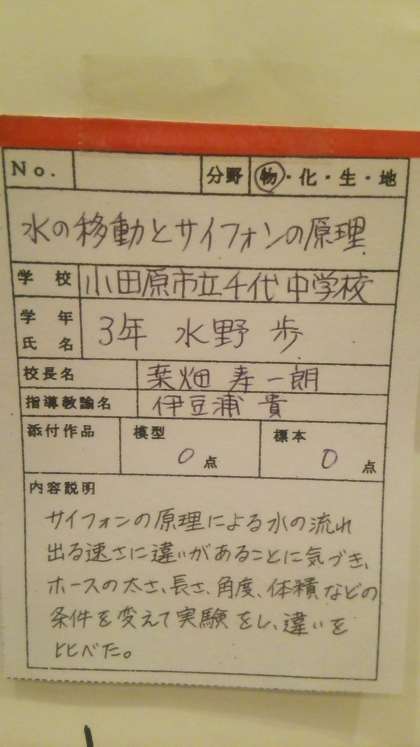 No. 分野 物・化・生・地
水の移動とサイフォンの原理
学校 小田原市立千代中学校
学年 氏名 3年 水野 歩
校長名 葉畑 寿一朗
指導教諭名 伊豆浦 貴
添付作品 模型 0点 標本 0点
内容説明
サイフォンの原理による水の流れ
出る速さに違いがあることに気づき、
ホースの太さ、長さ、角度、体積などの
条件を変えて実験をし、違いを
比べた。